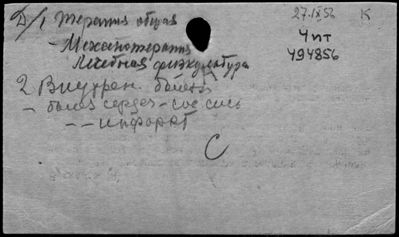 Д/1 терапия общая
27.IX.56 К
- Механотерапия
Чит
494856
Лечебная физкультура
2 Внутрен. болезн
- болез сердеч - сос сист
-- инфаркт
С